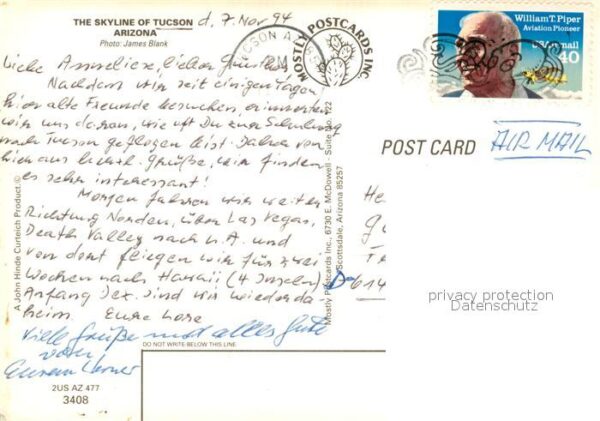 THE SKYLINE OF TUCSON
ARIZONA
d. 7. Nov 94
Photo: James Blank
Liebe Anneliese, lieber Günther
Nachdem wir seit einigen Tagen
hier alte Freunde besuchen erinnerten
wir uns daran, wie oft Du zur Schulung
nach Tucson geflogen bist. Daher von
hier aus herzl. Grüße, wir finden
es sehr interessant!
Morgen fahren wir weiter
Richtung Norden, über Las Vegas,
Death Valley nach L.A. und
von dort fliegen wir für zwei
Wochen nach Hawaii (4 Inseln)
Anfang Dez. sind wir wieder da
heim. Eure
Viele Grüße und alles Gute
von
Eurem Werner
2US AZ 477
3408
DO NOT WRITE BELOW THIS LINE
A John Hinde Curteich Product.©
MOSTLY POSTCARDS INC
Mostly Postcards Inc., 6730 E. McDowell - Suite No. 122
Scottsdale, Arizona 85257
William T. Piper
Aviation Pioneer
USAirmail
40
POST CARD
AIR MAIL
D-614
privacy protection
Datenschutz